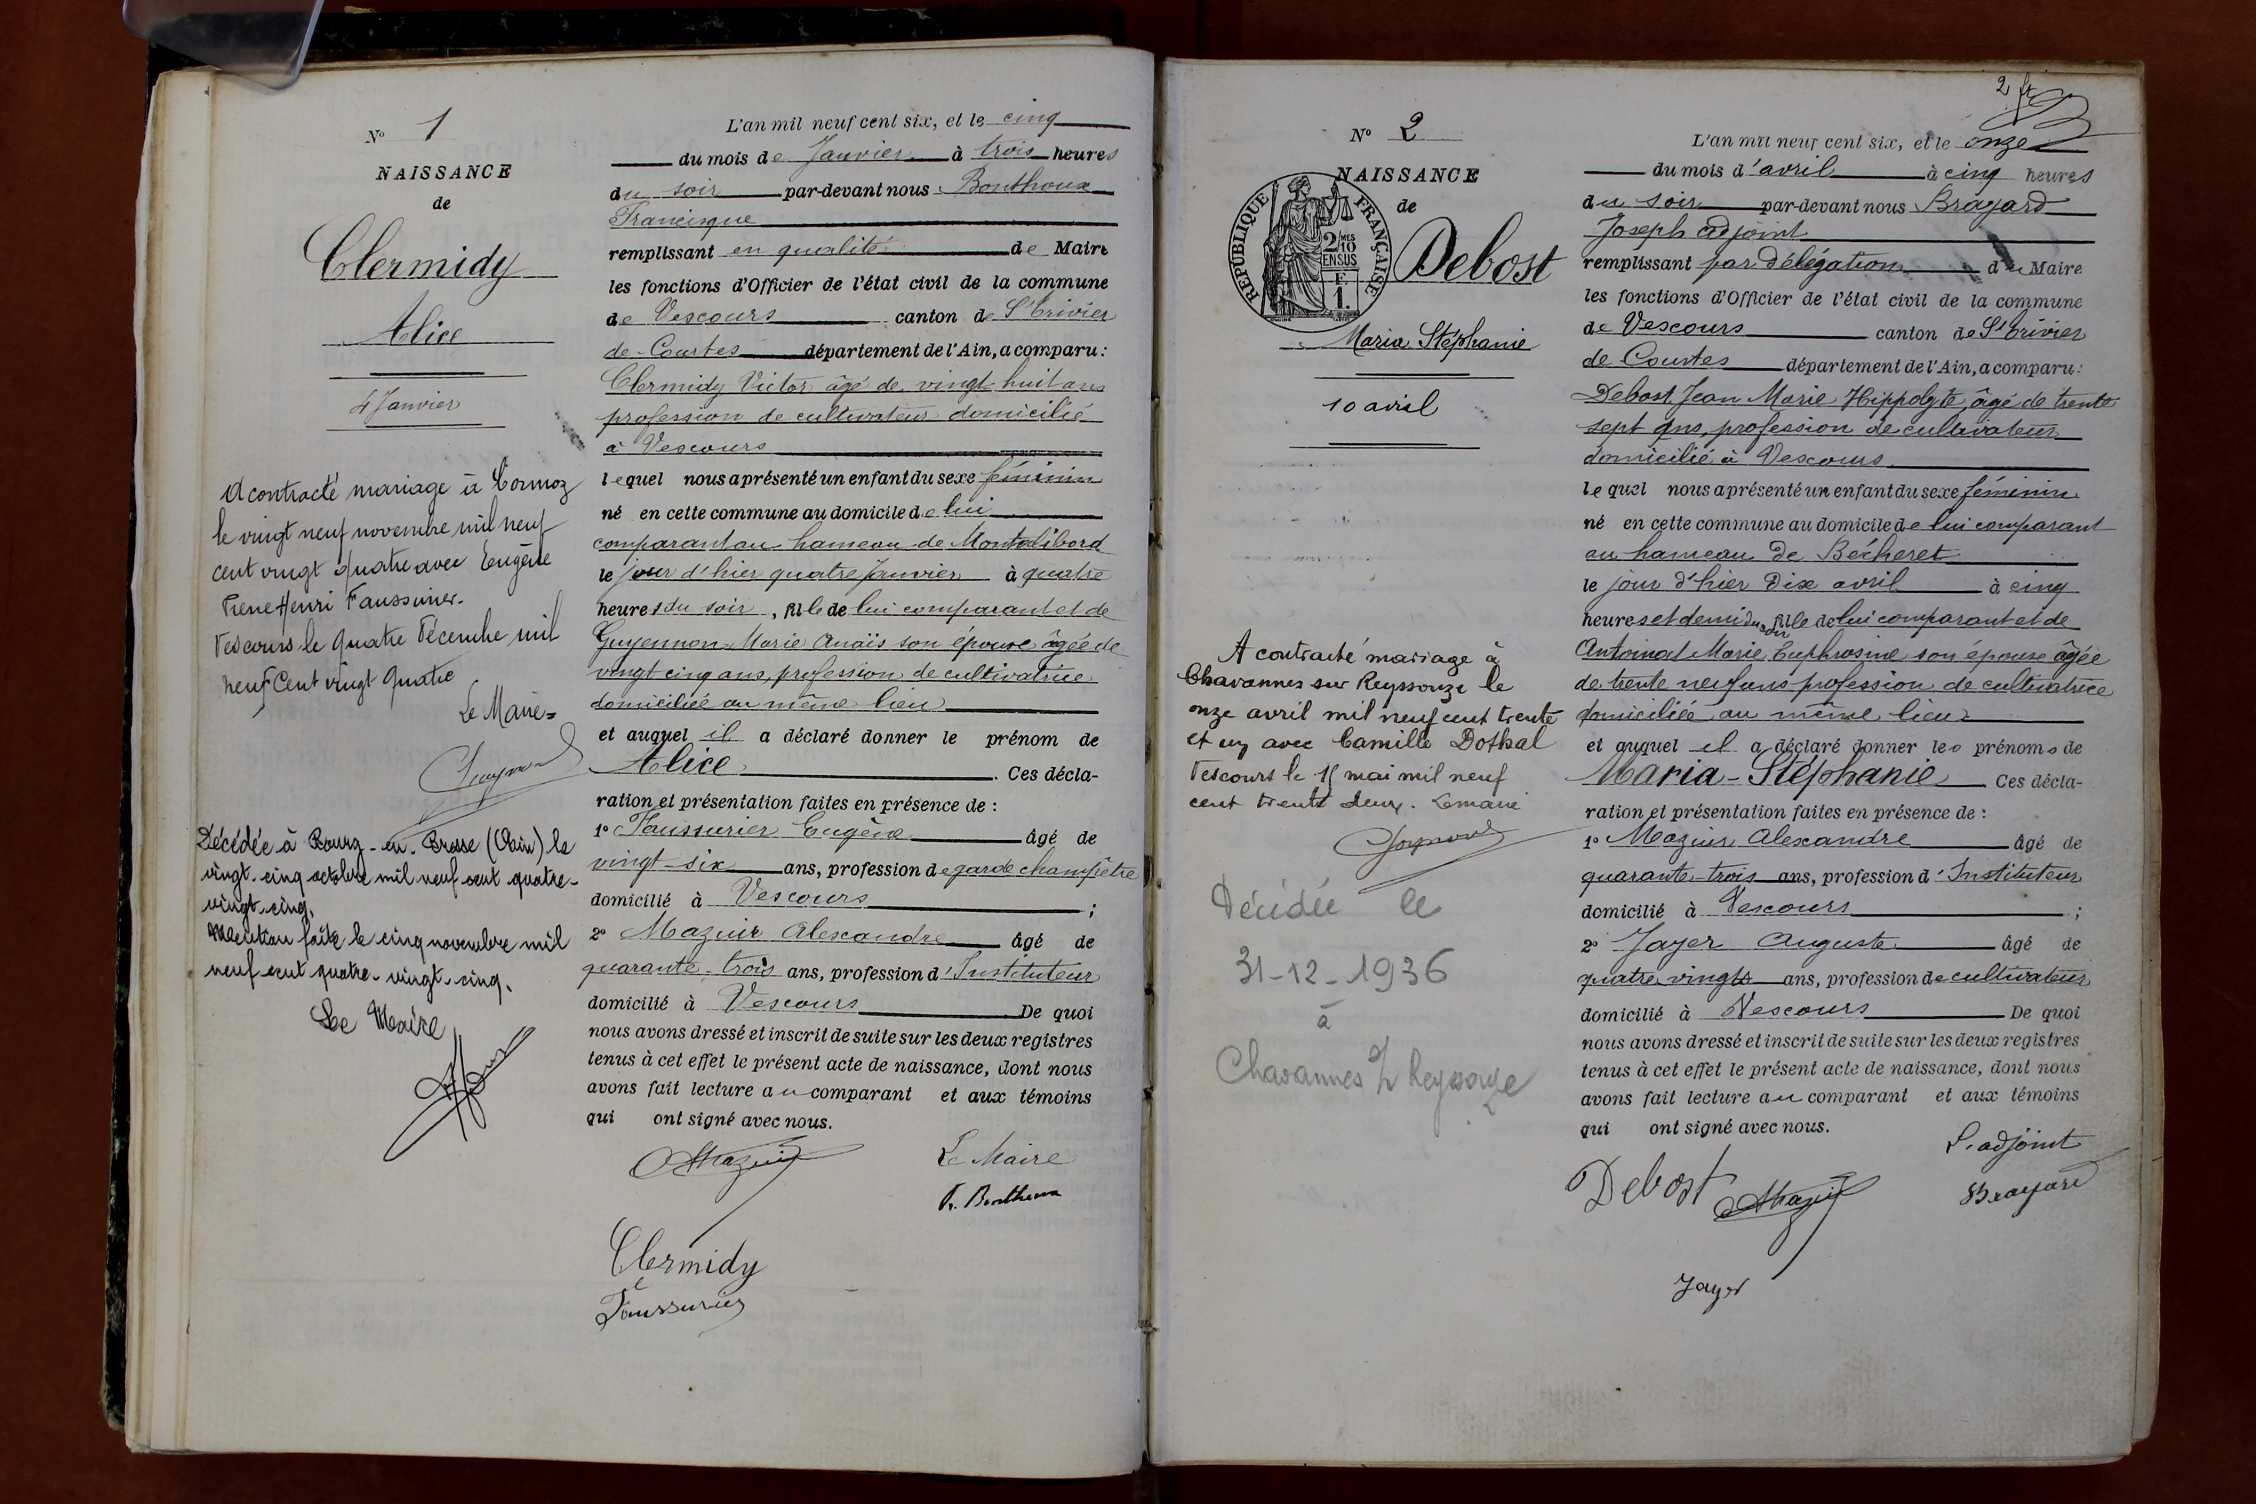 N° 1
NAISSANCE
de
Clermidy
Alice
4 Janvier
A contracté mariage à Cormoz
le vingt neuf novembre mil neuf
cent vingt quatre avec Eugène
Henri Faussurier.
Vescours le quatre Décembre mil
neuf cent vingt quatre
Le Maire
Décédée à Bourg-en-Bresse (Ain) le
vingt-cinq octobre mil neuf cent quatre-
vingt-cinq.
Mention faite le cinq novembre mil
neuf cent quatre-vingt-cinq.
Le Maire
L'an mil neuf cent six, et le cinq
du mois de Janvier à trois heures
du soir par-devant nous Bonthoux
Francisque
remplissant en qualité de Maire
les fonctions d'Officier de l'état civil de la commune
de Vescours canton de St Trivier
de Courtes département de l'Ain, a comparu :
Clermidy Victor âgé de vingt-huit ans
profession de cultivateur domicilié
à Vescours
lequel nous a présenté un enfant du sexe féminin
né en cette commune au domicile de lui
comparant au hameau de Montalibord
le jour d'hier quatre Janvier à quatre
heures du soir, fille de lui comparant et de
Guyennon Marie Anaïs son épouse âgée de
vingt cinq ans, profession de cultivatrice
domiciliée au même lieu
et auquel il a déclaré donner le prénom de
Alice. Ces décla-
ration et présentation faites en présence de :
1° Faussurier Eugène âgé de
vingt-six ans, profession de garde champêtre
domicilié à Vescours ;
2° Mazuir Alexandre âgé de
quarante-trois ans, profession d'Instituteur
domicilié à Vescours De quoi
nous avons dressé et inscrit de suite sur les deux registres
tenus à cet effet le présent acte de naissance, dont nous
avons fait lecture au comparant et aux témoins
qui ont signé avec nous.
Mazuir
Le Maire
F. Bonthoux
Clermidy
Faussurier
2 ft
N° 2
NAISSANCE
de
RÉPUBLIQUE FRANÇAISE
2 MES
10
EN SUS
F
1.
Debost
Maria Stéphanie
10 avril
A contracté mariage à
Chavannes sur Reyssouze le
onze avril mil neuf cent trente
et un avec Camille Dothal
Vescours le 15 mai mil neuf
cent trente deux. Le maire
Décédée le
31-12-1936
à
Chavannes s/ Reyssouze
L'an mil neuf cent six, et le onze
du mois d'avril à cinq heures
du soir par-devant nous Brayard
Joseph adjoint
remplissant par délégation du Maire
les fonctions d'Officier de l'état civil de la commune
de Vescours canton de St Trivier
de Courtes département de l'Ain, a comparu :
Debost Jean Marie Hippolyte, âgé de trente
sept ans, profession de cultivateur
domicilié à Vescours
lequel nous a présenté un enfant du sexe féminin
né en cette commune au domicile de lui comparant
au hameau de Bécheret
le jour d'hier Dix avril à cinq
heures et demi du soir fille de lui comparant et de
Antoinat Marie Euphrosine son épouse âgée
de trente neuf ans profession de cultivatrice
domiciliée au même lieu
et auquel il a déclaré donner les prénoms de
Maria-Stéphanie Ces décla-
ration et présentation faites en présence de :
1° Mazuir Alexandre âgé de
quarante-trois ans, profession d'Instituteur
domicilié à Vescours ;
2° Jayer Auguste âgé de
quatre vingts ans, profession de cultivateur
domicilié à Vescours De quoi
nous avons dressé et inscrit de suite sur les deux registres
tenus à cet effet le présent acte de naissance, dont nous
avons fait lecture au comparant et aux témoins
qui ont signé avec nous.
L'adjoint
Debost Mazuir Brayard
Jayer